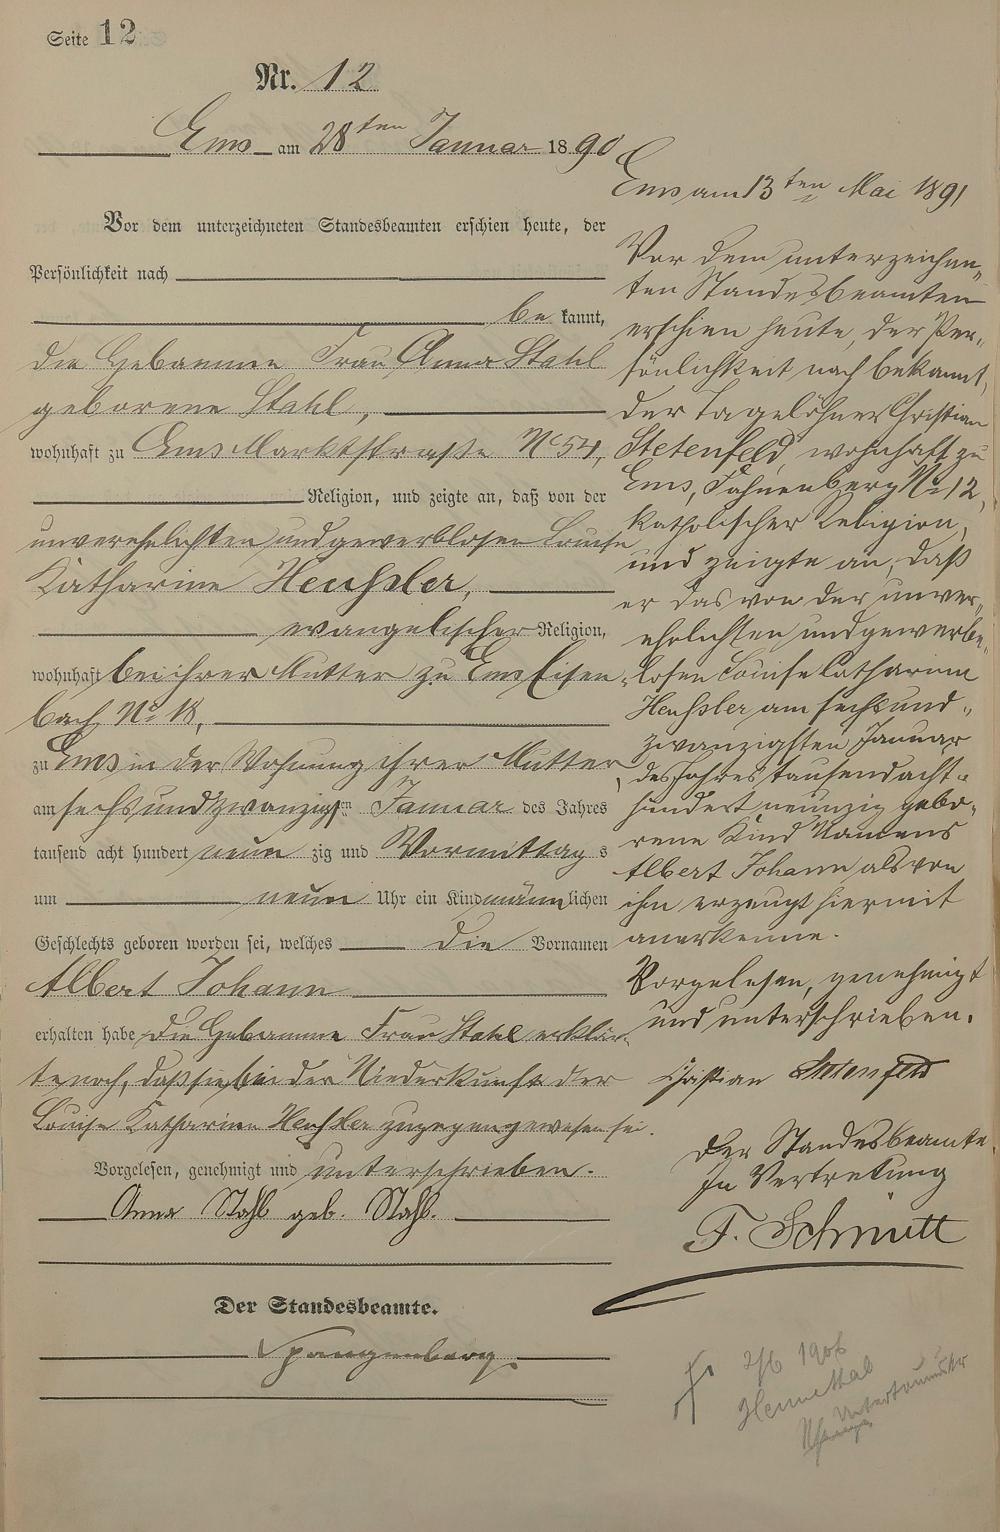 Seite 12
Nr. 12
Ems am 28ten Januar 1890
Vor dem unterzeichneten Standesbeamten erschien heute, der
Persönlichkeit nach
be kannt,
die Hebamme Frau Anna Stahl
geborene Stahl,
wohnhaft zu Ems Marktstraße No 54,
Religion, und zeigte an, daß von der
unverehelichten und gewerblosen Louise
Katharine Heußler,
evangelischer Religion,
wohnhaft bei ihrer Mutter zu Ems Eisen
bach No 18,
zu Ems in der Wohnung ihrer Mutter
am sechs und zwanzigsten Januar des Jahres
tausend acht hundert neun zig und Vormittag s
um neun Uhr ein Kind männlichen
Geschlechts geboren worden sei, welches die Vornamen
Albert Johann
erhalten habe die Hebamme Frau Stahl erklär-
te noch, daß sie bei der Niederkunft der
Louise Katharine Heußler zugegen gewesen sei.
Vorgelesen, genehmigt und unterschrieben.
Anna Stahl geb. Stahl.
Der Standesbeamte.
Spangenberg
Ems am 13ten Mai 1891
Vor dem unterzeichne-
ten Standesbeamten
erschien heute, der Per-
sönlichkeit nach bekannt,
der Tagelöhner Christian
Stetenfeld, wohnhaft zu
Ems, Fahnenberg No 12,
katholischer Religion,
und zeigte an, daß
er das von der unver-
ehelichten und gewerbe-
losen Louise Catharina
Heußler am sechs und
zwanzigsten Januar
des Jahres tausend acht-
hundert neunzig gebo-
rene Kind Namens
Albert Johann als von
ihm erzeugt hiermit
anerkenne.
Vorgelesen, genehmigt
und unterschrieben.
Christian Stetenfeld
Der Standesbeamte
In Vertretung
F. Schmitt
2/6 1906
Hennethal
Untertaunus